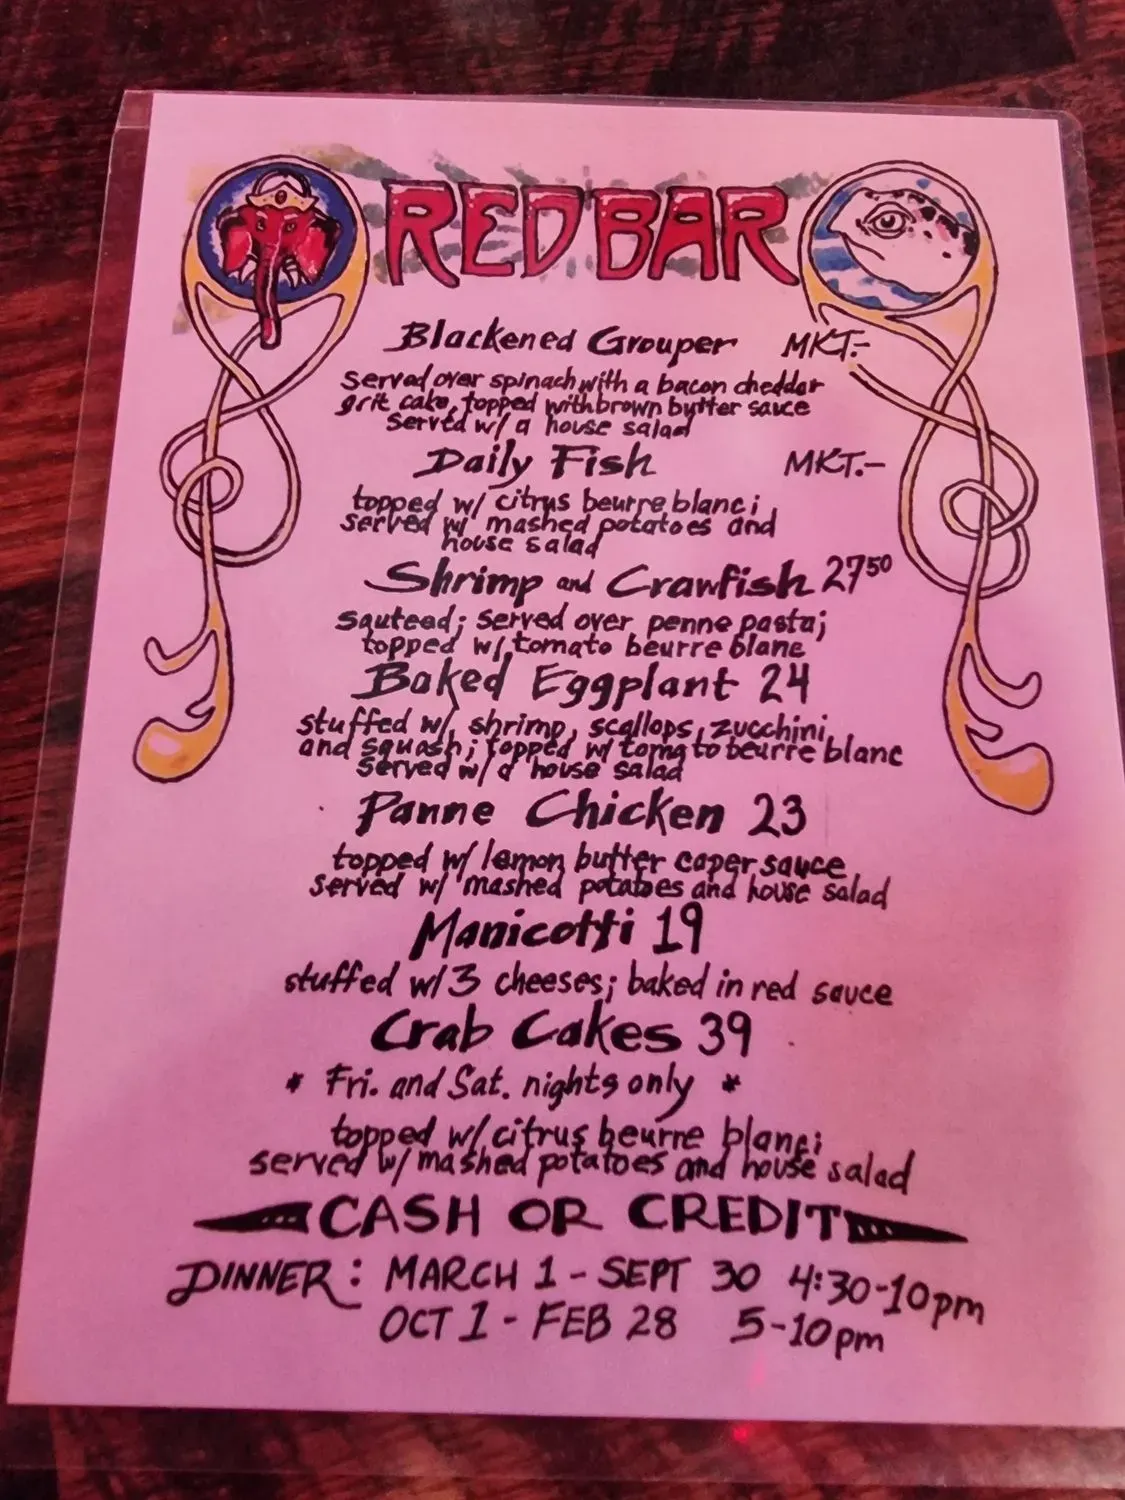 RED BAR
Blackened Grouper MKT.-
served over spinach with a bacon cheddar
grit cake, topped with brown butter sauce
served w/ a house salad
Daily Fish MKT.-
topped w/ citrus beurre blanc;
served w/ mashed potatoes and
house salad
Shrimp and Crawfish 27 50
sautead; served over penne pasta;
topped w/ tomato beurre blanc
Baked Eggplant 24
stuffed w/ shrimp, scallops, zucchini,
and squash; topped w/ tomato beurre blanc
served w/ a house salad
Panne Chicken 23
topped w/ lemon butter caper sauce
served w/ mashed potatoes and house salad
Manicotti 19
stuffed w/ 3 cheeses; baked in red sauce
Crab Cakes 39
* Fri. and Sat. nights only *
topped w/ citrus beurre blanc;
served w/ mashed potatoes and house salad
CASH OR CREDIT
DINNER: MARCH 1 - SEPT 30 4:30-10pm
OCT 1 - FEB 28 5-10pm